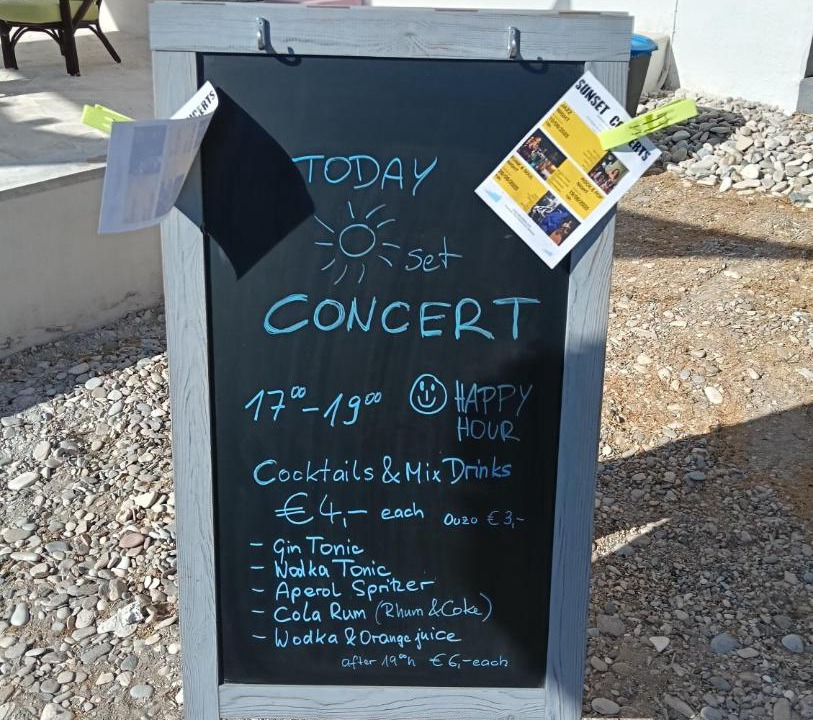 TODAY
set
CONCERT
17⁰⁰-19⁰⁰
HAPPY
HOUR
Cocktails & Mix Drinks
€ 4,- each
Ouzo € 3,-
- Gin Tonic
- Wodka Tonic
- Aperol Spritzer
- Cola Rum (Rhum & Coke)
- Wodka & Orange juice
after 19⁰⁰h € 6,- each
CERTS
SUNSET C
ERTS
JAZZ
NIGHT